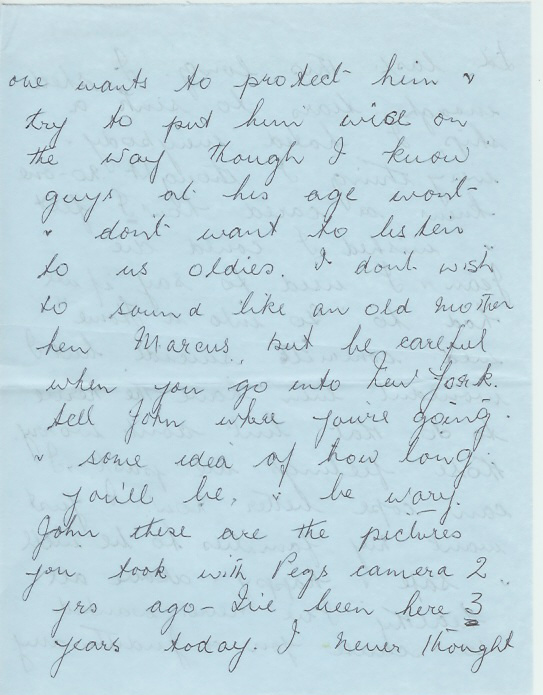 one wants to protect him &
try to put him wise on
the way though I know
guys at his age wont
& dont want to listen
to us oldies. I dont wish
to sound like an old mother
hen Marcus, but be careful
when you go into New York.
tell John where you're going.
& some idea of how long
you'll be, & be wary.
John these are the pictures
you took with Pegs camera 2
yrs ago - I've been here 3
years today. I never thought